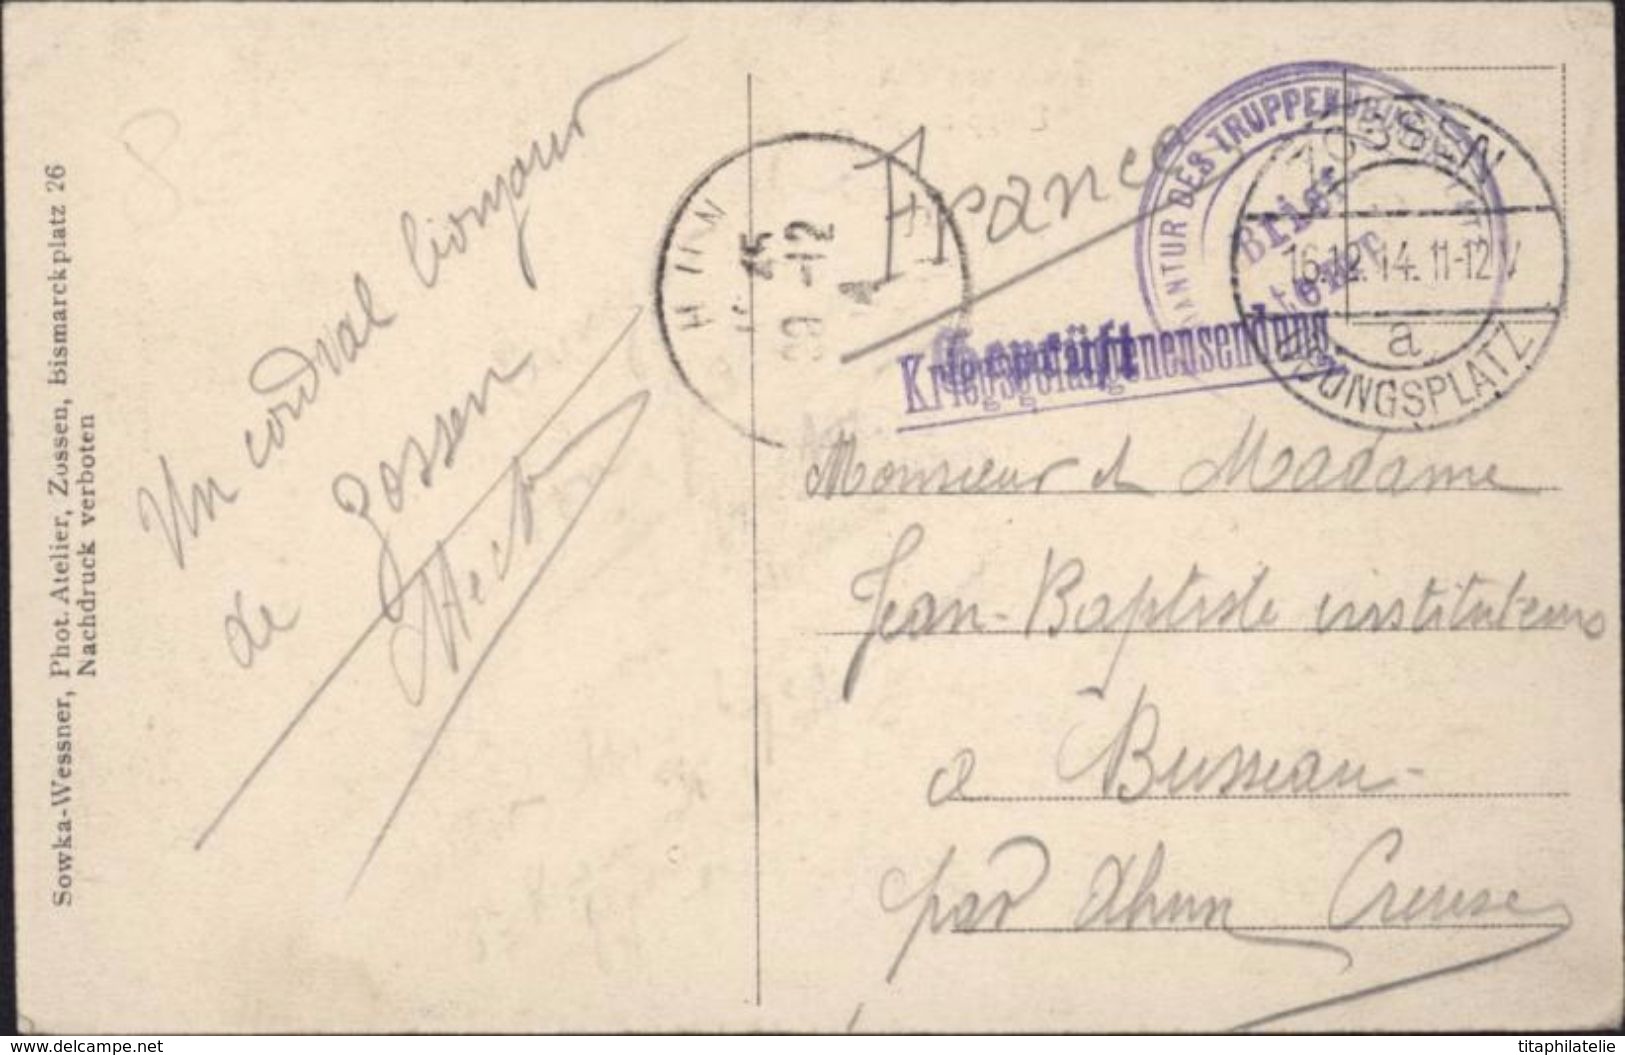 Sowka-Wessner, Phot. Atelier, Zossen, Bismarckplatz 26
Nachdruck verboten
Un cordial bonjour
de Zossen
Hector
AHUN
15
29 -12
France
KOMMANTUR DES TRUPPEN
Brief
Geprüft
Kriegsgefangenensendung
ZOSSEN
16.12.14. 11-12 V
a
ÜBUNGSPLATZ
Monsieur et Madame
Jean-Baptiste instituteurs
à Busseau
par Ahun Creuse
www.delcampe.net
titaphilatelie